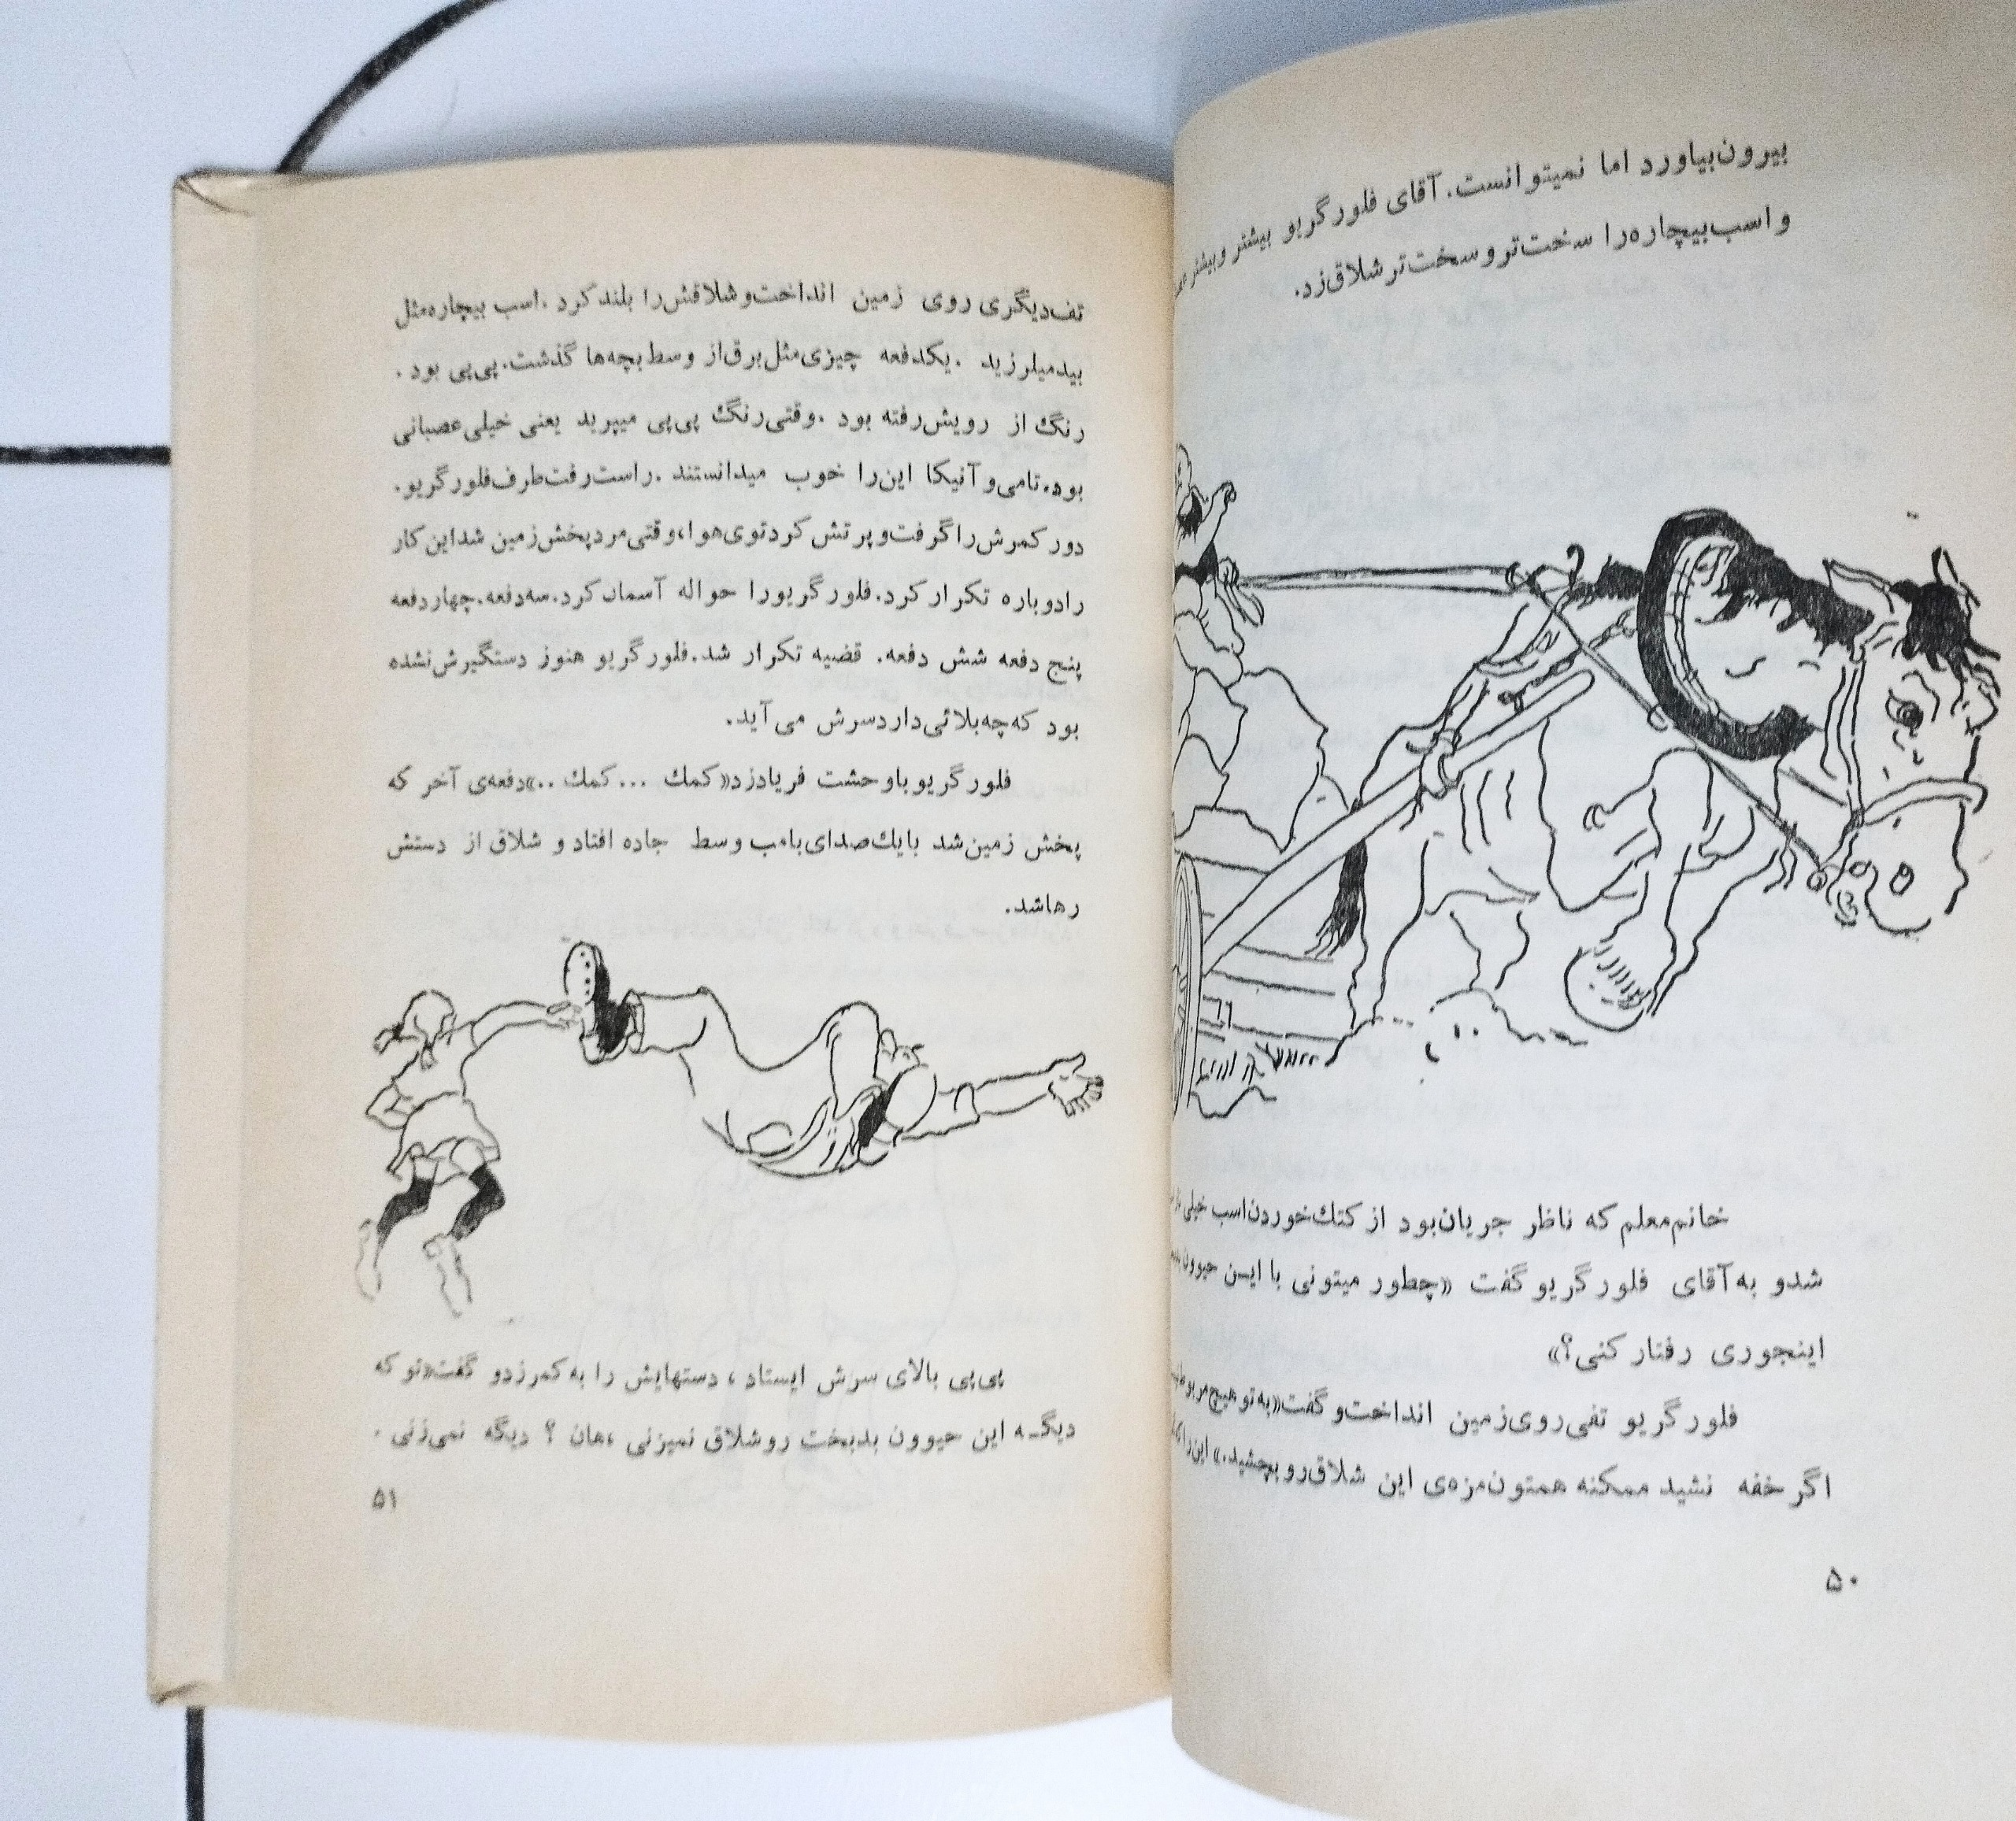 بیرون‌بیاورد اما نمیتوانست. آقای فلورگریو بیشتر وبیشتر
واسب‌بیچاره‌را سخت‌تر وسخت‌تر شلاق‌زد.
خانم‌معلم که ناظر جریان‌بود از کتك‌خوردن‌اسب خیلی
شدو به‌آقای فلورگریو گفت «چطور میتونی با ایـن حیوون
اینجوری رفتار کنی؟»
فلورگریو تفی‌روی‌زمین انداخت‌و گفت«به‌تو هیچ
اگر خفه نشید ممکنه همتون‌مزه‌ی این شلاق‌رو بچشید.» این‌را
۵۰
تف‌دیگری روی زمین انداخت‌و شلاقش‌را بلند کرد .اسب بیچاره‌مثل
بیدمیلرزید .یکدفعه چیزی‌مثل‌برق‌از وسط بچه‌ها گذشت.پی‌پی بود .
رنگ از رویش‌رفته بود .وقتی‌رنگ پی‌پی میپرید یعنی خیلی‌عصبانی
بود.تامی‌و آنیکا این‌را خوب میدانستند .راست‌رفت‌طرف‌فلورگریو.
دور کمرش‌را گرفت‌و پرتش کردتوی‌هوا،وقتی‌مردپخش‌زمین شداین کار
رادوباره تکرار کرد.فلورگریورا حواله آسمان کرد.سه‌دفعه.چهاردفعه
پنج دفعه شش دفعه. قضیه تکرار شد.فلورگریو هنوز دستگیرش‌نشده
بود که‌چه‌بلائی‌داردسرش می‌آید.
فلورگریو باوحشت فریادزد«کمك ... کمك ..»دفعه‌ی آخر که
پخش زمین‌شد بایك‌صدای‌بامب وسط جاده افتاد و شلاق از دستش
رهاشد.
پی‌پی بالای سرش ایستاد ، دستهایش را به‌کمرزدو گفت«تو که
دیگـه این حیوون بدبخت روشلاق نمیزنی ،هان ؟ دیگه نمی‌زنی .
۵۱